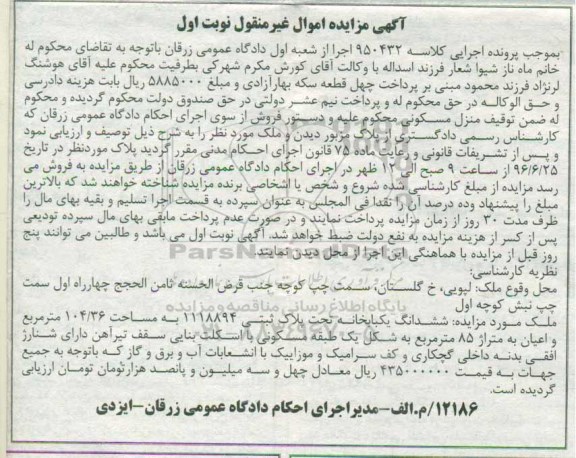 آگهی مزایده اموال غیرمنقول نوبت اول
بموجب پرونده اجرایی کلاسه ۹۵۰۴۳۲ اجرا از شعبه اول دادگاه عمومی زرقان باتوجه به تقاضای محکوم له
خانم ماه ناز شیوا شعار فرزند اسداله با وکالت آقای کورش مکرم شهرکی بطرفیت محکوم علیه آقای هوشنگ
لرنژاد فرزند محمود مبنی بر پرداخت چهل قطعه سکه بهارآزادی و مبلغ ۵۸۸۵۰۰۰ ریال بابت هزینه دادرسی
و حق الوکاله در حق محکوم له و پرداخت نیم عشر دولتی در حق صندوق دولت محکوم گردیده و محکوم
له ضمن توقیف منزل مسکونی محکوم علیه و دستور فروش از سوی اجرای احکام دادگاه عمومی زرقان که
کارشناس رسمی دادگستری از پلاک مزبور دیدن و ملک مورد نظر را به شرح ذیل توصیف و ارزیابی نمود
و پس از تشریفات قانونی و رعایت ماده ۷۵ قانون اجرای احکام مدنی مقرر گردید پلاک موردنظر در تاریخ
۹۶/۶/۲۵ از ساعت ۹ صبح الی ۱۲ ظهر در اجرای احکام دادگاه عمومی زرقان از طریق مزایده به فروش می
رسد مزایده از مبلغ کارشناسی شده شروع و شخص یا اشخاصی برنده مزایده شناخته خواهند شد که بالاترین
مبلغ را پیشنهاد وده درصد آن را نقدا فی المجلس به عنوان سپرده به قسمت اجرا تسلیم و بقیه بهای مال را
ظرف مدت ۳۰ روز از زمان مزایده پرداخت نمایند و در صورت عدم پرداخت مابقی بهای مال سپرده تودیعی
پس از کسر از هزینه مزایده به نفع دولت ضبط خواهد شد. آگهی نوبت اول می باشد و طالبین می توانند پنج
روز قبل از مزایده با هماهنگی این اجرا از محل دیدن نمایند.
نظریه کارشناسی:
محل وقوع ملک: لپویی، خ گلستان، سمت چپ کوچه جنب قرض الحسنه ثامن الحجج چهارراه اول سمت
چپ نبش کوچه اول
ملک مورد مزایده: ششدانگ یکبابخانه تحت پلاک ثبتی ۱۱۱۸۸۹۴ به مساحت ۱۰۴/۳۶ مترمربع
و اعیان به متراژ ۸۵ مترمربع به شکل یک طبقه مسکونی با اسکلت بنایی سقف تیرآهن دارای شنارژ
افقی بدنه داخلی گچکاری و کف سرامیک و موزاییک با انشعابات آب و برق و گاز که باتوجه به جمیع
جهات به قیمت ۴۳۵۰۰۰۰۰۰ ریال معادل چهل و سه میلیون و پانصد هزارتومان تومان ارزیابی
گردیده است.
۱۲۱۸۶/م.الف-مدیراجرای احکام دادگاه عمومی زرقان-ایزدی